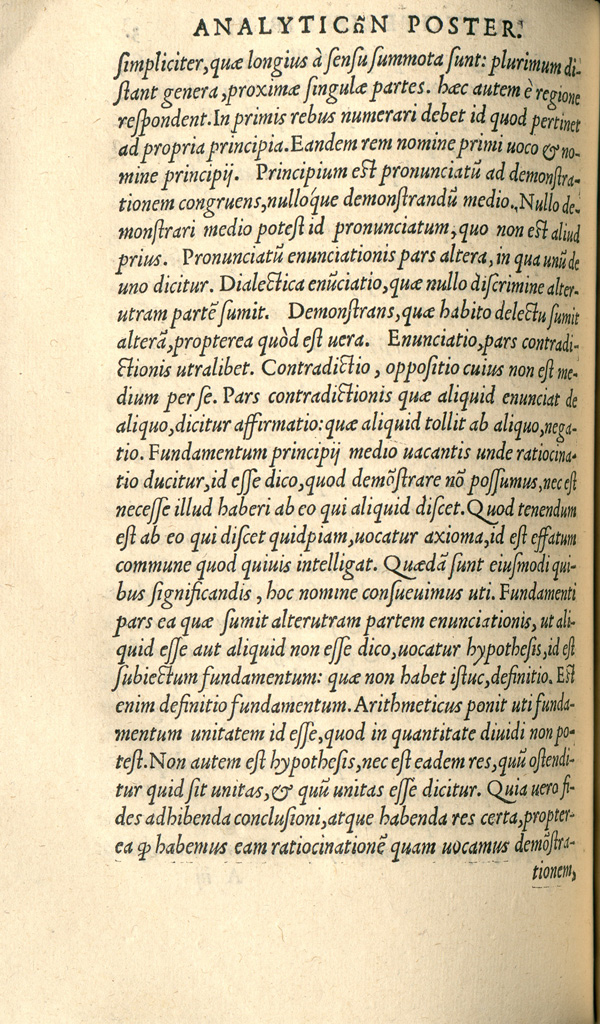 ANALYTICῶN POSTER.
ſimpliciter,quæ longius à ſenſu ſummota ſunt: plurimum di-
ſtant genera,proximæ ſingulæ partes. hæc autem è regione
reſpondent.In primis rebus numerari debet id quod pertinet
ad propria principia.Eandem rem nomine primi uoco & no-
mine principij. Principium eſt pronunciatũ ad demonſtra-
tionem congruens,nulloq́ue demonſtrandũ medio.,Nullo de-
monſtrari medio poteſt id pronunciatum,quo non eſt aliud
prius. Pronunciatũ enunciationis pars altera, in qua unũ de
uno dicitur. Dialectica enũciatio,quæ nullo diſcrimine alter-
utram partẽ ſumit. Demonſtrans,quæ habito delectu ſumit
alterã,propterea quòd eſt uera. Enunciatio,pars contradi-
ctionis utralibet. Contradictio, oppoſitio cuius non eſt me-
dium per ſe. Pars contradictionis quæ aliquid enunciat de
aliquo,dicitur affirmatio:quæ aliquid tollit ab aliquo,nega-
tio. Fundamentum principij medio uacantis unde ratiocina-
tio ducitur,id eſſe dico,quod demõſtrare nõ poſſumus,nec eſt
neceſſe illud haberi ab eo qui aliquid diſcet. Quod tenendum
eſt ab eo qui diſcet quidpiam,uocatur axioma,id eſt effatum
commune quod quiuis intelligat. Quædã ſunt eiuſmodi qui-
bus ſignificandis, hoc nomine conſueuimus uti. Fundamenti
pars ea quæ ſumit alterutram partem enunciationis, ut ali-
quid eſſe aut aliquid non eſſe dico,uocatur hypotheſis,id eſt
ſubiectum fundamentum: quæ non habet iſtuc,definitio. Eſt
enim definitio fundamentum.Arithmeticus ponit uti funda-
mentum unitatem id eſſe,quod in quantitate diuidi non po-
teſt.Non autem eſt hypotheſis,nec eſt eadem res,quũ oſtendi-
tur quid ſit unitas,& quũ unitas eſſe dicitur. Quia uero fi-
des adhibenda concluſioni,atque habenda res certa,propter-
ea ꝙ habemus eam ratiocinationẽ quam uocamus demõſtra-
tionem,